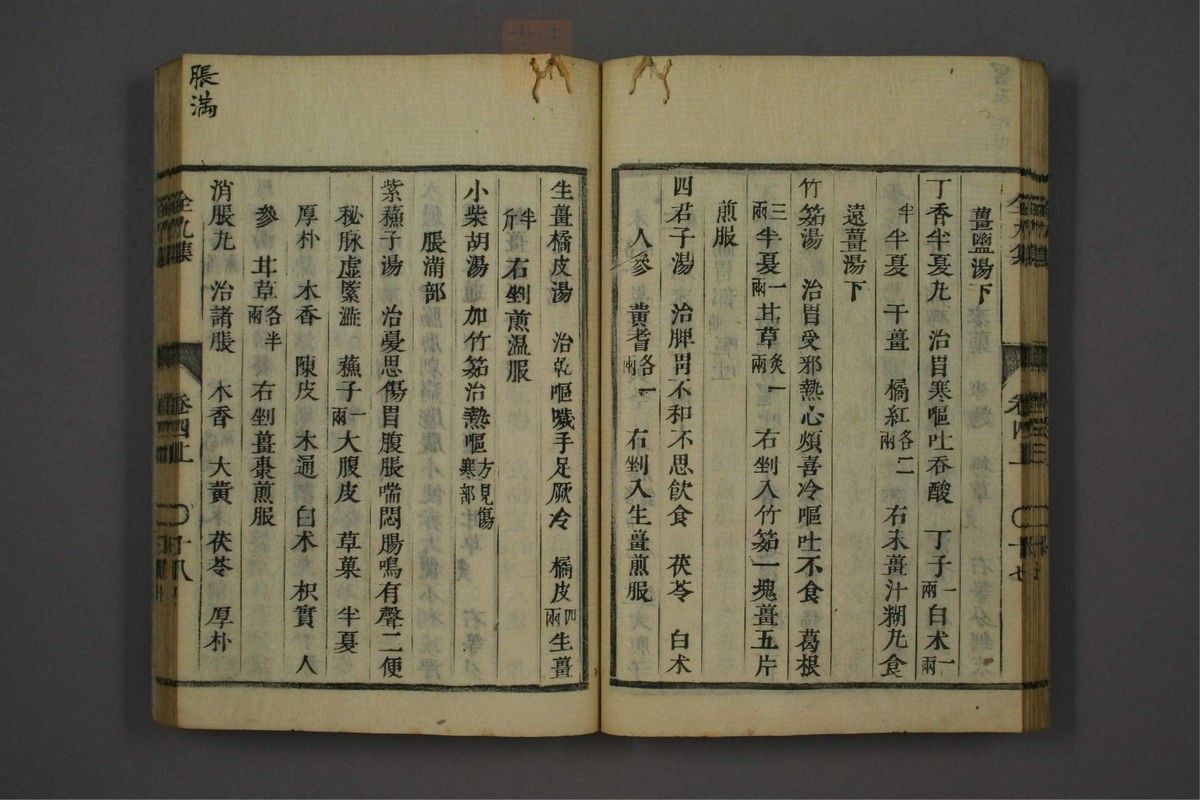 薑鹽湯下
丁香半夏丸 治胃寒嘔吐吞酸 丁子一兩 白术一兩
半 半夏 干薑 橘紅各二兩 右末薑汁糊丸食
遠薑湯下
竹茹湯 治胃受邪熱心煩喜冷嘔吐不食 葛根
三兩 半夏一兩 甘草炙一兩 右剉入竹茹一塊薑五片
煎服
四君子湯 治脾胃不和不思飲食 茯苓 白术
人參 黃耆各一兩 右剉入生薑煎服
生薑橘皮湯 治乾嘔噦手足厥冷 橘皮四兩 生薑
半斤 右剉煎溫服
小柴胡湯加竹茹治熱嘔方見傷寒部
脹滿部
紫蘇子湯 治憂思傷胃腹脹喘悶腸鳴有聲二便
秘脉虛緊澁 蘇子一兩 大腹皮 草菓 半夏
厚朴 木香 陳皮 木通 白术 枳實 人
參 甘草各半兩 右剉薑棗煎服
消脹丸 治諸脹 木香 大黃 茯苓 厚朴
脹滿
全九集
卷四上
十八